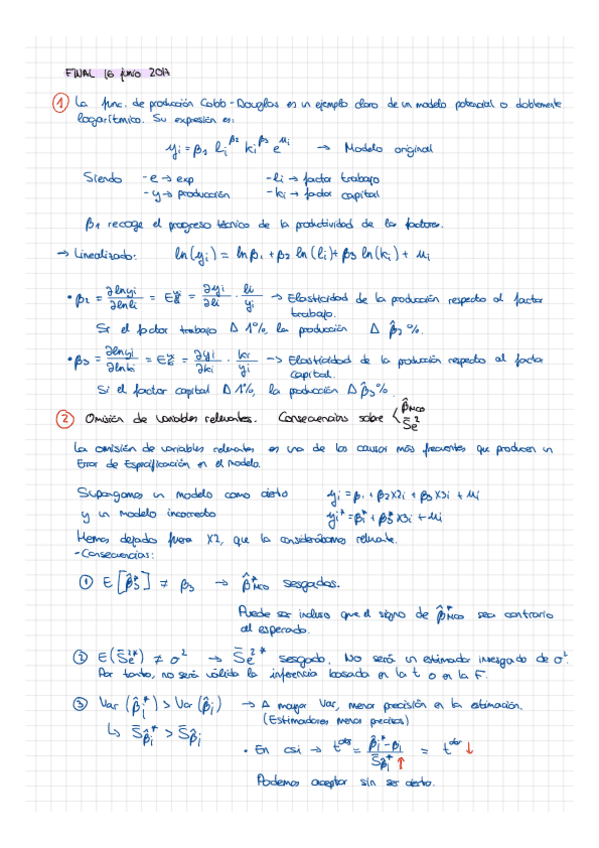 FINAL 16 junio 2017
① La func. de producción Cobb-Douglas es un ejemplo claro de un modelo potencial o doblemente
logarítmico. Su expresión es:
yi = β1 li^β2 ki^β3 e^μi → Modelo original
Siendo - e → exp - li → factor trabajo
- y → producción - ki → factor capital
β1 recoge el progreso técnico de la productividad de los factores.
→ Linealizado: ln(yi) = lnβ1 + β2 ln(li) + β3 ln(ki) + μi
• β2 = ∂lnyi/∂lnli = = ∂yi/∂li · li/yi → Elasticidad de la producción respecto al factor
trabajo.
Si el factor trabajo Δ 1%, la producción Δ β̂2 %.
• β3 = ∂lnyi/∂lnki = = ∂yi/∂ki · ki/yi → Elasticidad de la producción respecto al factor
capital.
Si el factor capital Δ 1%, la producción Δ β̂3 %.
② Omisión de variables relevantes. Consecuencias sobre < β̂MCO
S̄e²
La omisión de variables relevantes es una de las causas más frecuentes que producen un
Error de Especificación en el modelo.
Supongamos un modelo como cierto yi = β1 + β2X2i + β3X3i + μi
y un modelo incorrecto yi* = β1* + β3* X3i + μi
Hemos dejado fuera X2, que la considerábamos relevante.
- Consecuencias:
① E[β̂3*] ≠ β3 → β̂*MCO sesgados.
Puede ser incluso que el signo de β̂*MCO sea contrario
al esperado.
② E(S̄e²*) ≠ σ² → S̄e²* sesgado. No será un estimador insesgado de σ².
Por tanto, no será válida la inferencia basada en la t o en la F.
③ Var(β̂i*) > Var(β̂i) → Δ mayor Var, menor precisión en la estimación.
(Estimadores menos precisos)
↳ S̄β̂i* > S̄β̂i
• En csi → t^obs = β̂i* - βi / S̄β̂i* ↑ = t^obs ↓
Podemos aceptar sin ser cierto.